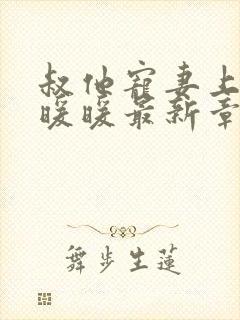 叔他宠妻上
暖暖最新章
舞步生莲